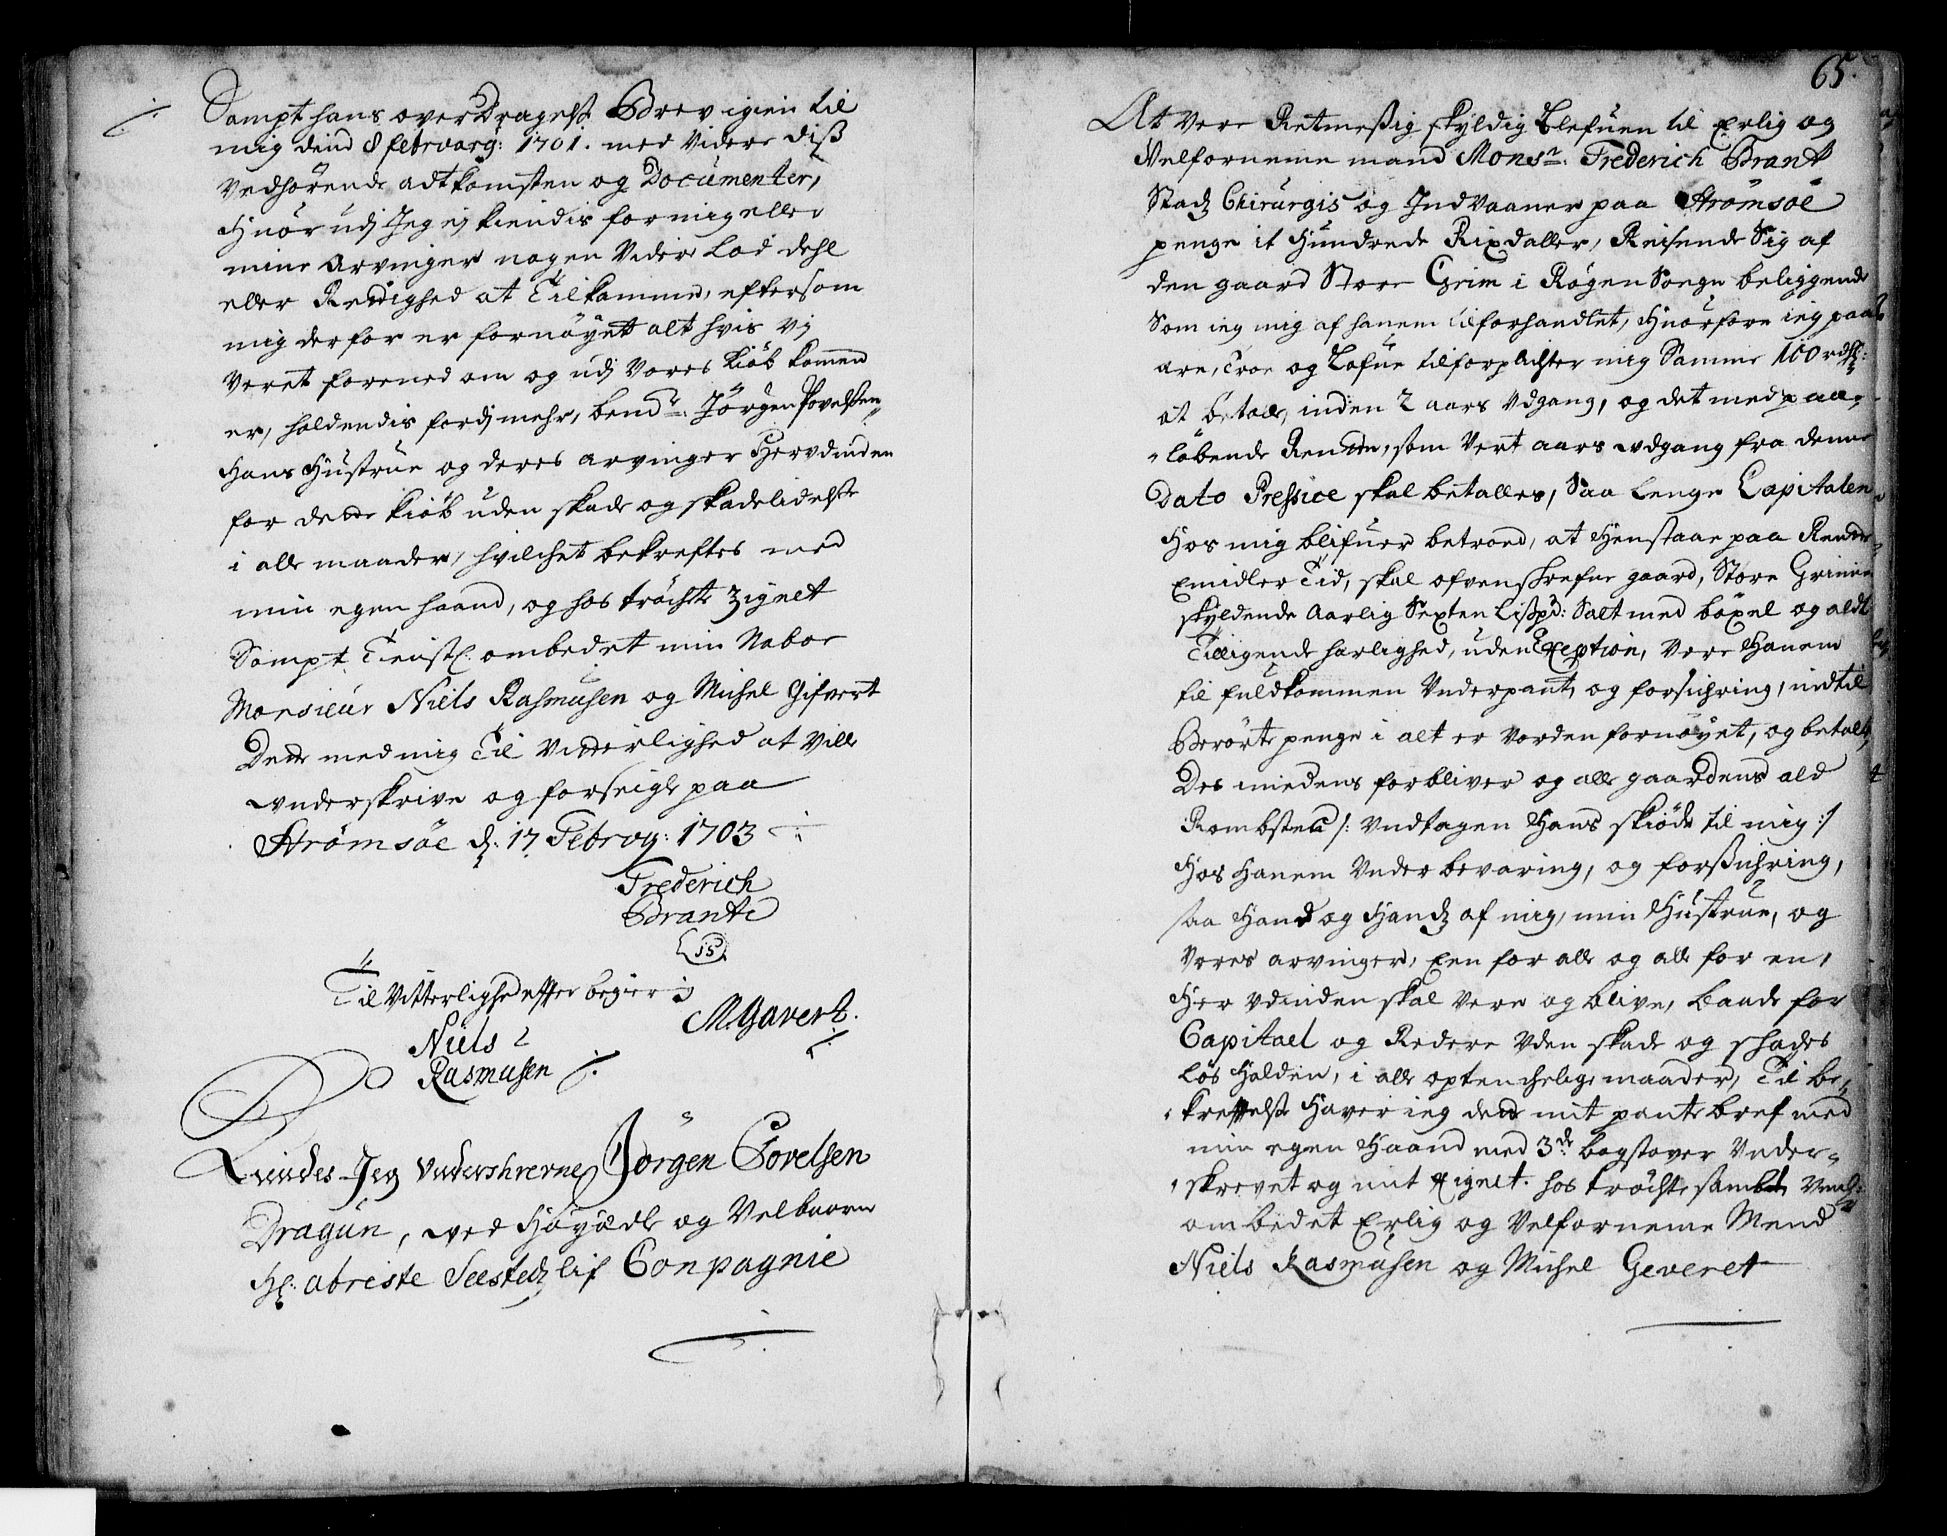 Sampt hans overdragelse Brev igien til
mig dend 8 februarÿ: 1701. med Videre diß
Vedhørende adtkomsten og Documenter,
Huor udj Jeg ej kiendis for mig eller
mine Arvinger nogen Videre Lod dehl
eller Rettighed at Tilkomme, eftersom
mig derfor er fornøyett alt hvis vj
Veret forened om og udj Vores kiøb kommen
er, holdendis fordj mehr, bemd:te Jørgen Povelsen
Hans Hustrue og deres arvinger Hervdinden
for dette kiøb uden skade og skadelidelse
i alle maader, hvilchet bekreftes med
min egen haand, og hos tröchte Zignet
Sampt Tienstl: ombedet min Naboe
Monsieur Niels Rasmusen og Michel Gifvert
Dette med mig Til Vitterlighed at Ville
vnderskrive og forseigle paa
Strømsøe d: 17 Febrvy: 1703
Frederich
Brante
15
Til Vitterlighed efter begier
M. Gavert.
Niels
Rasmusen
Kiendes Jeg Vnderschrefne Jörgen Povelsen
Dragun, ved Høyædle og Velbaarne
Hr: obriste Seestedz lif Conpagnie
65.
At Vere Retmeßig skyldig blefuen til Erlig og
Velforneme mand Monsr: Frederich Brant
Stadz Chirurgis og Indvaaner paa Strømsöe
penge it Hundrede Rixdaller, Reisende Sig af
den gaard Store Grim i Røgen Sogn beliggende
Som ieg mig af hanem tilforhandlet, Huorfore ieg paa
ære, Troe og Lofue tilforplichter mig Samme 100 rdlr:
at betale, inden 2 aars Vdgang, og det med paa-
løbende Rente, som Vert aars udgang fra denne
Dato Pressice skal betalles, Saa lenge Capitalen
Hos mig blifuer betroed, at Henstaae paa Rente
Emidler Tid, skal ofvenskrefne gaard, Store Grimm
skyldende Aarlig Sexten Lißpd: Salt med böxel og aldt
Tilligende harlighed, uden Exeption, Vere Hanem
til fuldkommen Vnderpant, og forsichring, indtil
Berørte penge i alt er Vorden fornøyet, og betalt,
Des imedens forbliver og alle gaardens ald
/: Vndtagen Hans skiøde til mig :/
Hos Hanem Vnder bevaring, og forßichring,
saa Hand og Handz af mig, min Hustrue, og
Vores arvinger, Een for alle og alle for en,
Her Vdinden skal Vere og blive, baade for
Capitael og Redere Vden skade og schades
løs Holden, i alle optenchelige maader, Til be-
kreftelse Haver ieg dette mit pantebref med
min egen Haand med 3de bogstaver Vnder-
skrevet og mit Zignet hos tröchte sambt Vensl:
ombedet Erlig og Velforneme Mend
Niels Rasmusen og Michel Geveret